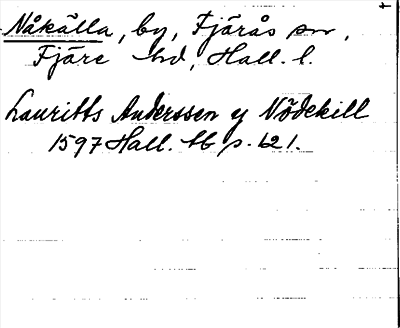 Nåkälla, by, Fjärås sn,
Fjäre hd, Hall. l.
Lauritts Anderssen y Nödekill
1597 Hall. lb p. 121.